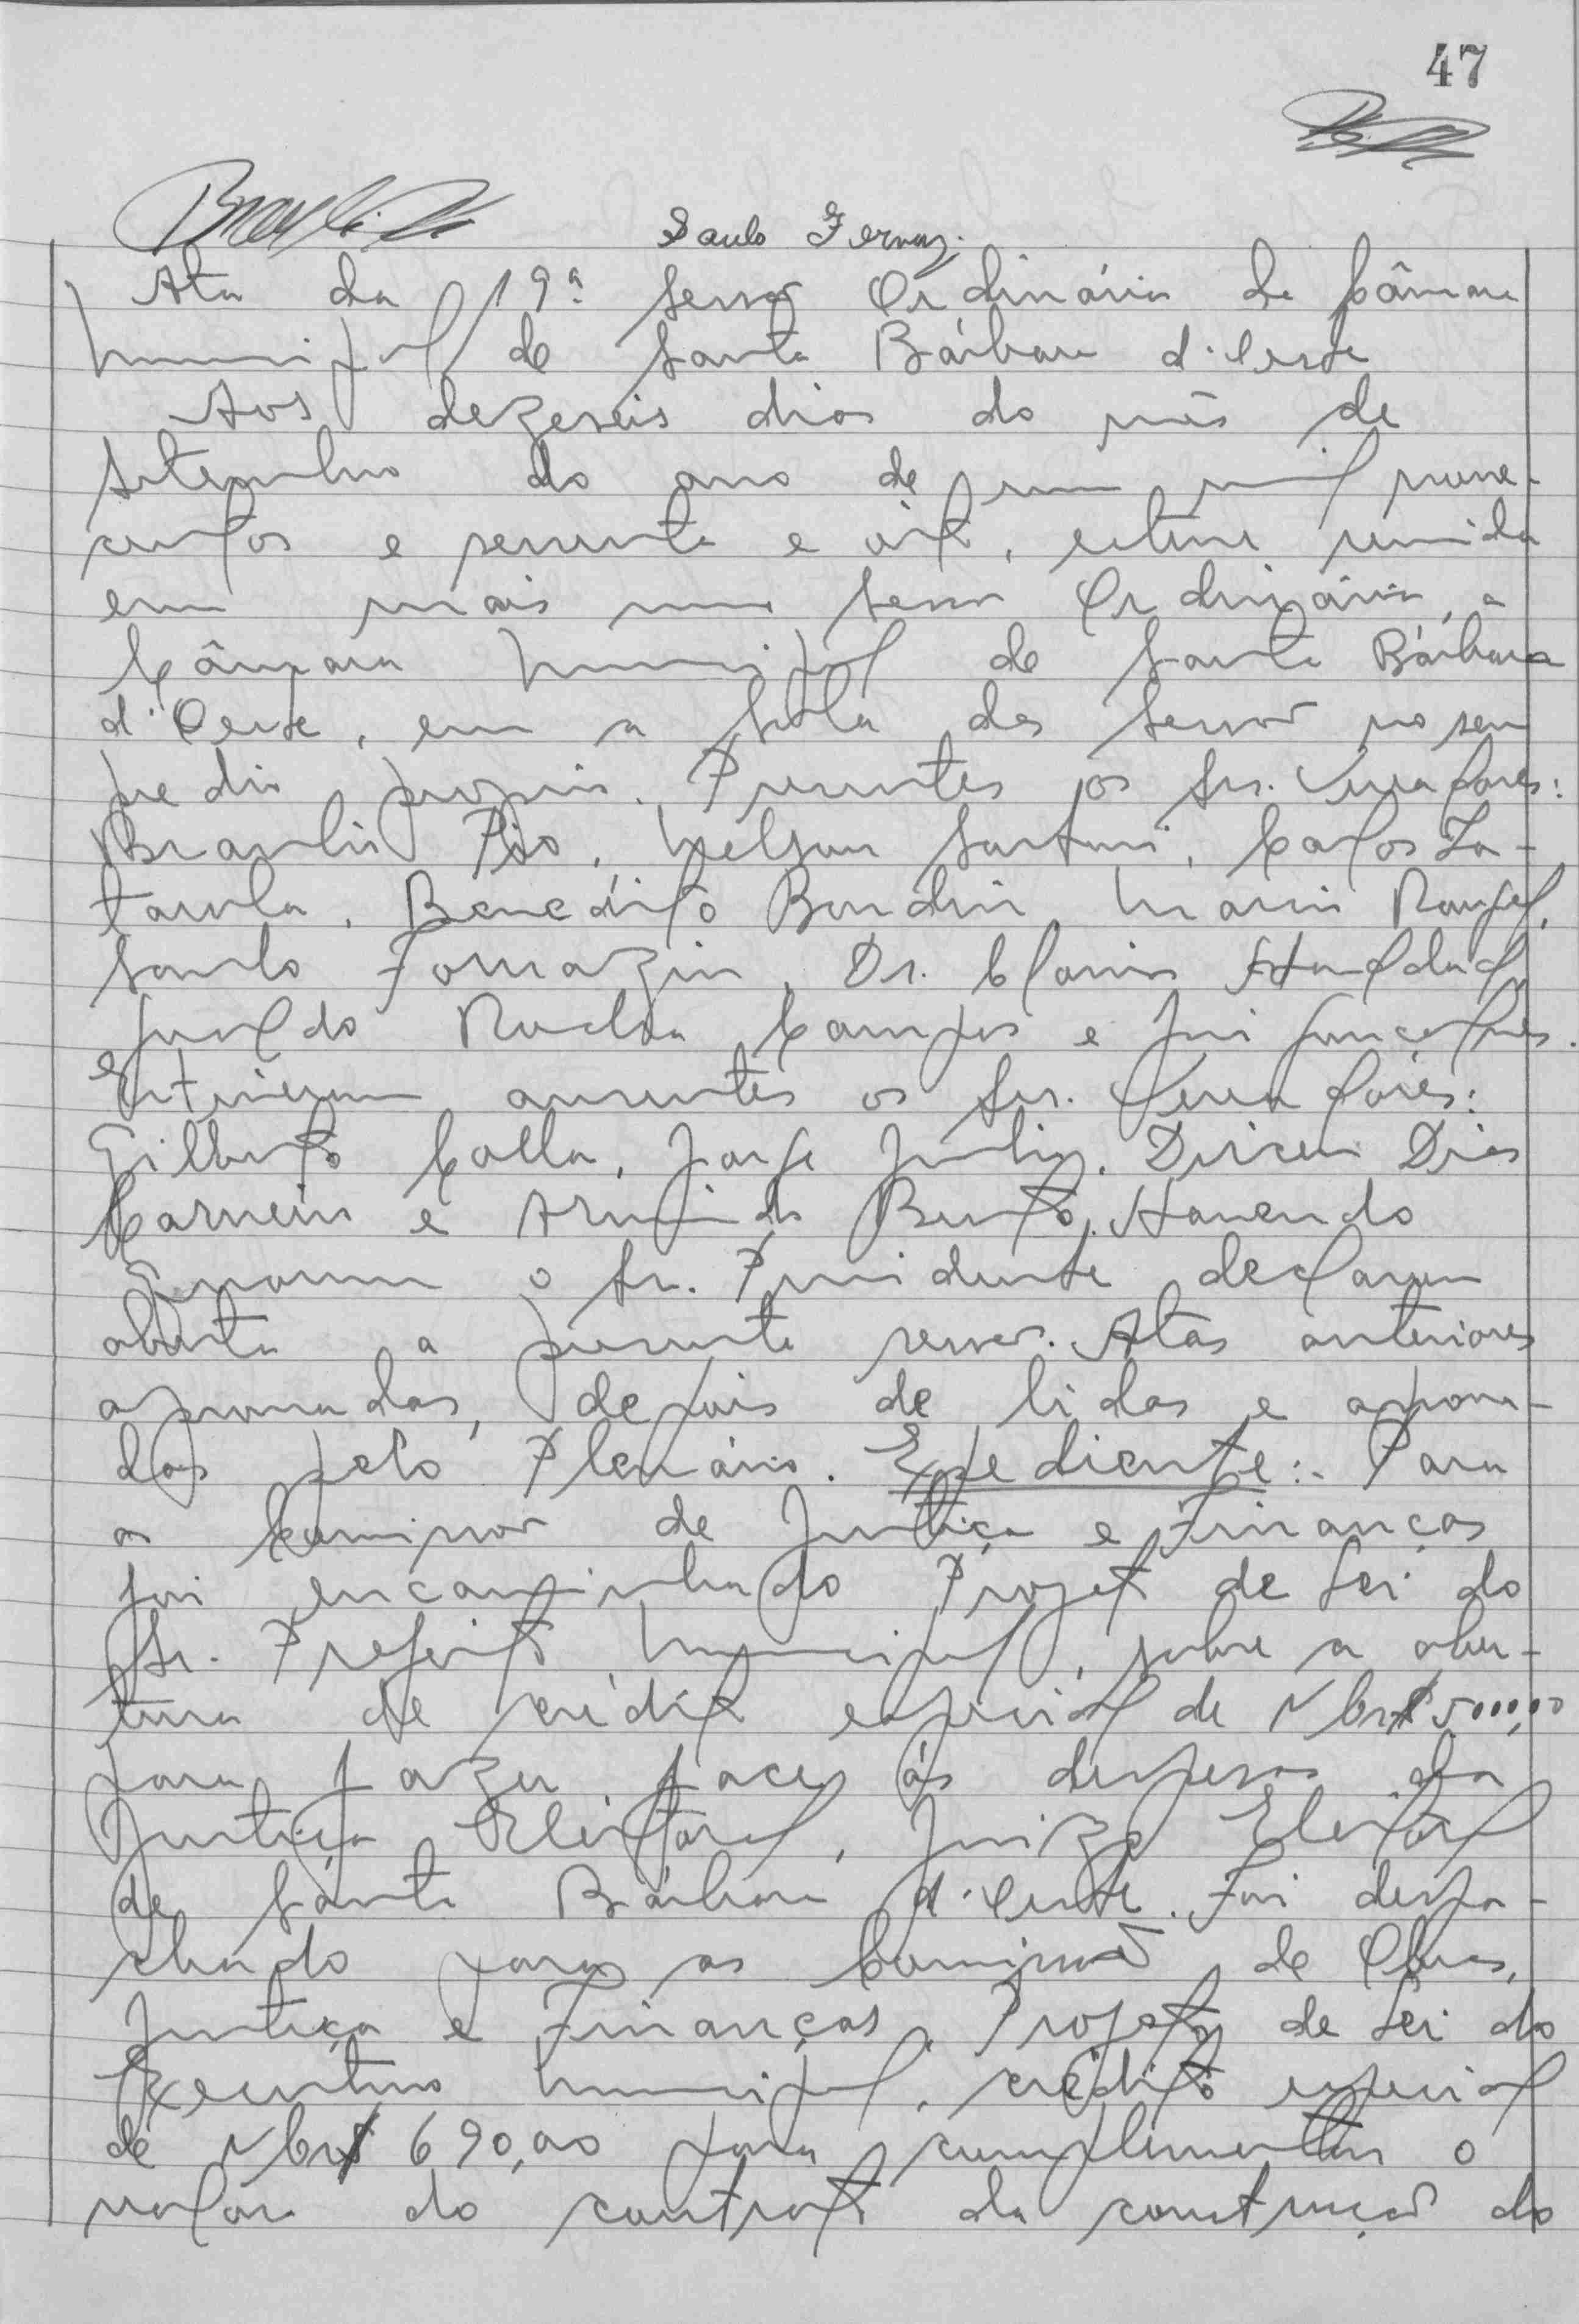 47
Ata da 19ª sessão Ordinária da Câmara
Municipal de Santa Bárbara d'Oeste
Aos dezesseis dias do mês de
Setembro do ano de um mil nove-
centos e sessenta e oito, esteve reunida
em mais uma sessão Ordinária, a
Câmara Municipal de Santa Bárbara
d'Oeste, em a Sala das Sessões no seu
predio proprio. Presentes os Srs. Vereadores:
Brasilio Pio, Nelson Sartori, Carlos
Benedito Bondin, Mario Rangel,
Santo Fomazin, Dr.
Rocha Campos e
Estiveram ausentes os Srs. Vereadores:
Gilberto Calla, Jorge Juliz, Dirceu Dias
Carneiro e Armindo Bento. Havendo
o Sr. Presidente declarou
aberta a presente sessão. Atas anteriores
aprovadas, depois de lidas e aprova-
das pelo Plenário. Expediente:- Para
as Comissões de Justiça e Finanças
foi encaminhado Projeto de Lei do
Sr. Prefeito Municipal, sobre a aber-
tura de crédito especial de NCr$ 500,00
para fazer face às despesas da
Justiça Eleitoral, Juizo Eleitoral
de Santa Bárbara d'Oeste. Foi despa-
chado para as Comissões de Obras,
Justiça e Finanças, Projeto de Lei do
Executivo Municipal, crédito especial
de NCr$ 690,00 para complementar o
valor do contrato da construção do